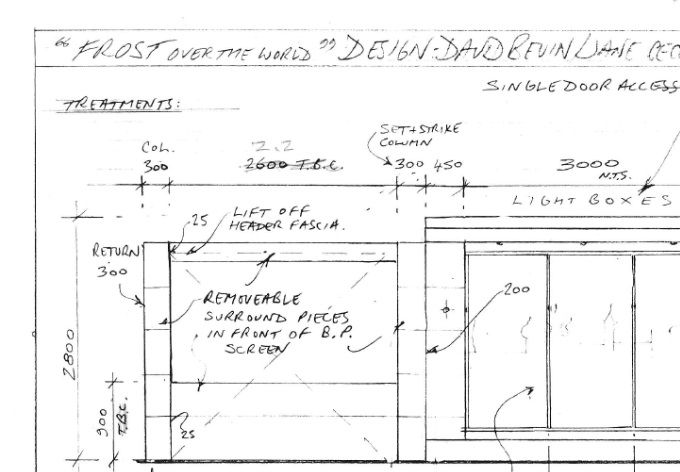 "FROST OVER THE WORLD" DESIGN-DAVID BEVIN
SINGLE DOOR ACCESS
TREATMENTS:
COL.
300
2.2
2600 T.B.C.
SET+STRIKE
COLUMN
300
450
3000
N.T.S.
LIGHT BOXES
25
LIFT OFF
HEADER FASCIA.
RETURN
300
REMOVEABLE
SURROUND PIECES
IN FRONT OF B.P.
SCREEN
200
2800
900
T.B.C.
25